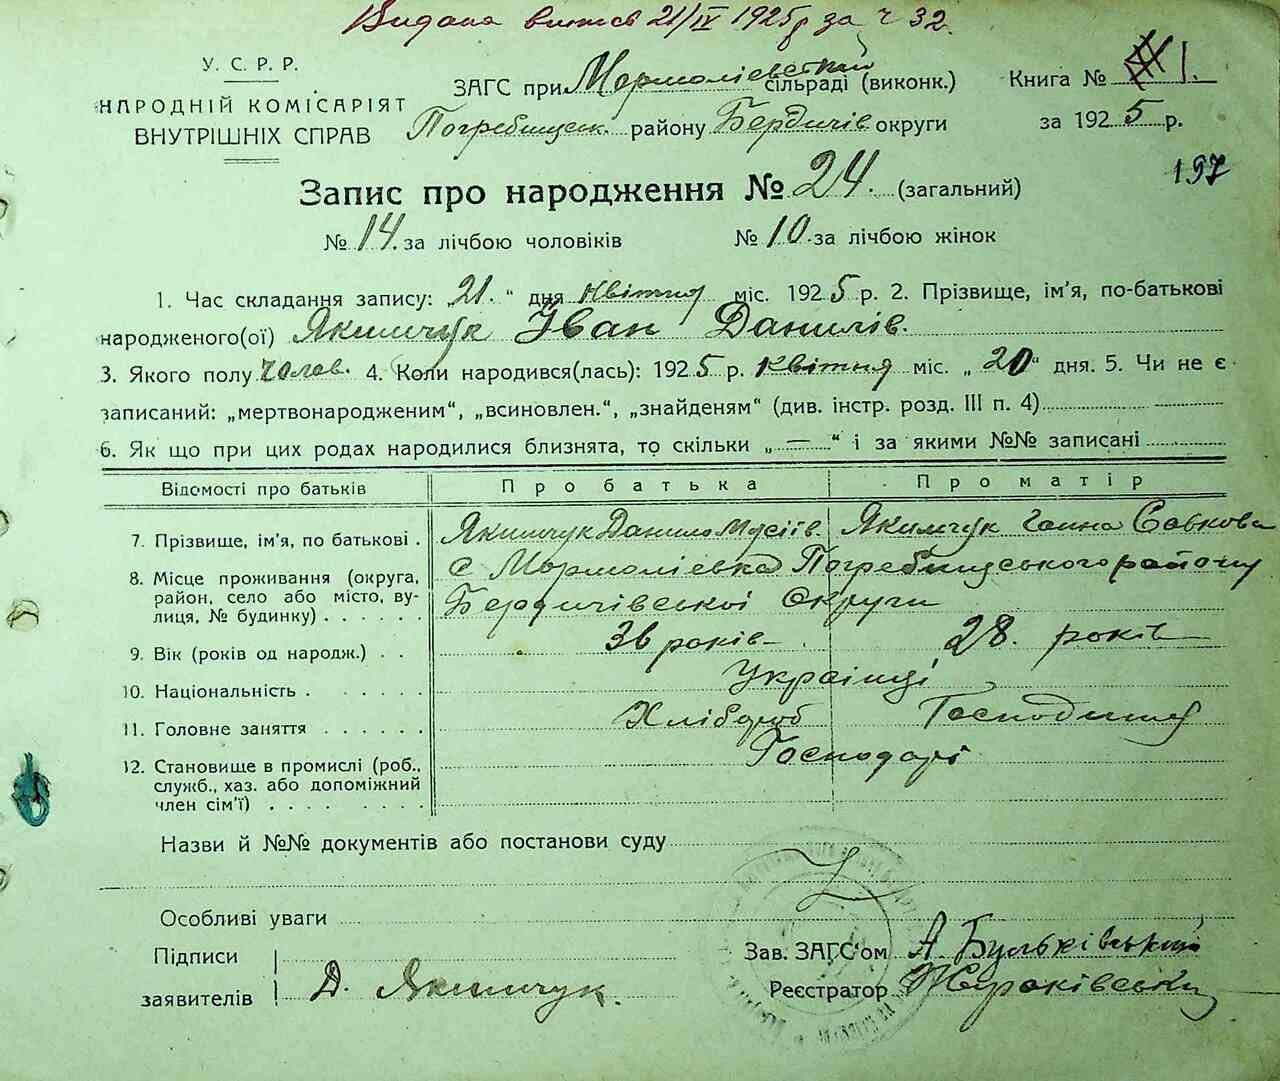 Видана витяг 21/IV 1925р за ч 32.
У. С. Р. Р.
НАРОДНІЙ КОМІСАРІЯТ
ВНУТРІШНІХ СПРАВ
ЗАГС при Мормоліевській сільраді (виконк.)
Погребищеск. району Бердичів округи
Книга № 1.
за 1925 р.
197
Запис про народження № 24. (загальний)
№ 14. за лічбою чоловіків № 10. за лічбою жінок
1. Час складання запису: „21." дня квітня міс. 1925 р. 2. Прізвище, ім'я, по-батькові
народженого(ої) Якимчук Іван Данилів.
3. Якого полу чолов. 4. Коли народився(лась): 1925 р. квітня міс. „20" дня. 5. Чи не є
записаний: „мертвонародженим", „всиновлен.", „знайденям" (див. інстр. розд. III п. 4)
6. Як що при цих родах народилися близнята, то скільки „—" і за якими №№ записані
Відомості про батьків Про батька Про матір
7. Прізвище, ім'я, по батькові . Якимчук Данило Мусіїв. Якимчук Ганна Савкова
8. Місце проживання (округа, район, село або місто, вулиця, № будинку) . . . . . . с Мормоліевка Погребищського району
Бердичівськоі Округи
9. Вік (років од народж.) . . 36 років 28. років
10. Національність . . . . . . Украінці
11. Головне заняття . . . . . . Хлібороб Господиня
12. Становище в промислі (роб., служб., хаз. або допоміжний член сім'ї) . . . . . . . Господарі
Назви й №№ документів або постанови суду
Особливі уваги
Підписи
заявителів Д. Якимчук.
Зав. ЗАГС'ом А Бульківський
Реєстратор